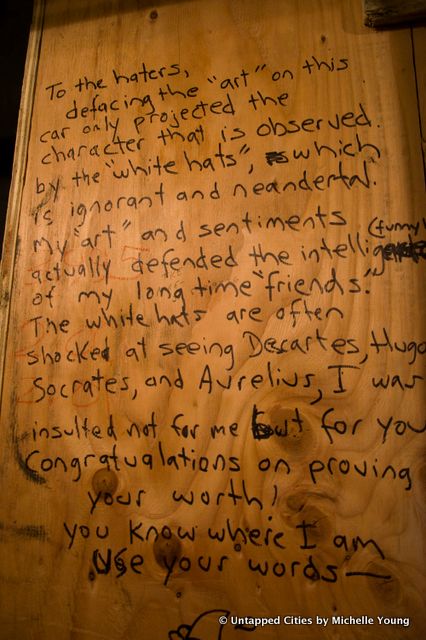 To the haters,
defacing the "art" on this
car only projected the
character that is observed.
by the "white hats", which
is ignorant and neandertal.
my "art" and sentiments (funny
actually defended the intellig
of my long time "friends."
The white hats are often
shocked at seeing Descartes, Hugo
Socrates, and Aurelius, I was
insulted not for me but for you
Congratualations on proving
your worth!
you know where I am
Use your words—
© Untapped Cities by Michelle Young